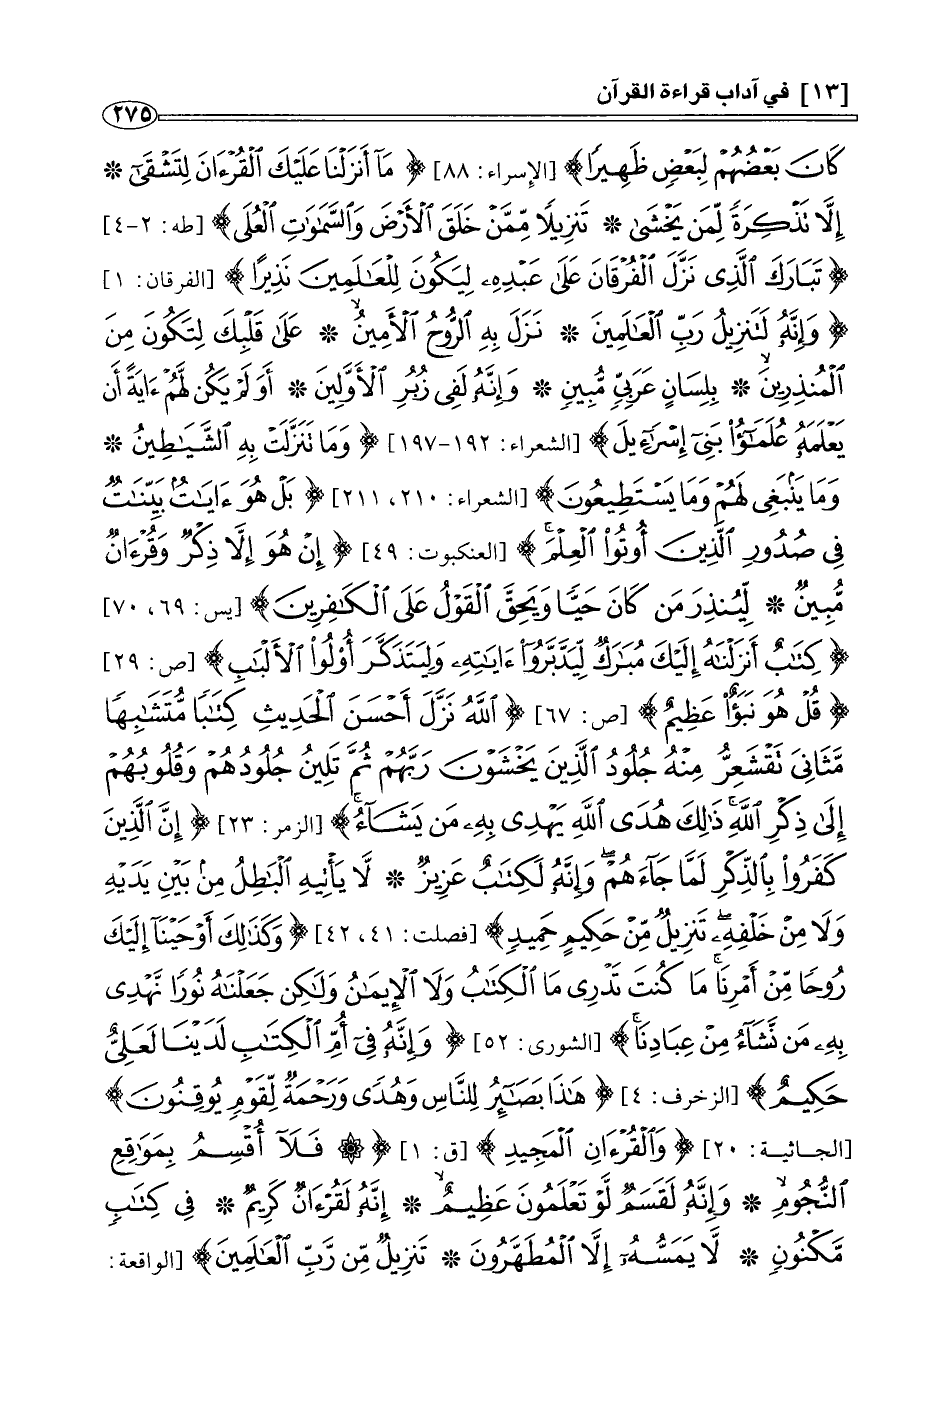 [١٣] في آداب قراءة القرآن
٢٧٥
كَانَ بَعْضُهُمْ لِبَعْضٍ ظَهِيرًا﴾ [الإسراء: ٨٨] ﴿مَآ أَنزَلْنَا عَلَيْكَ ٱلْقُرْءَانَ لِتَشْقَىٰٓ *
إِلَّا تَذْكِرَةً لِّمَن يَخْشَىٰ * تَنزِيلًا مِّمَّنْ خَلَقَ ٱلْأَرْضَ وَٱلسَّمَٰوَٰتِ ٱلْعُلَى﴾ [طه: ٢-٤]
﴿تَبَارَكَ ٱلَّذِى نَزَّلَ ٱلْفُرْقَانَ عَلَىٰ عَبْدِهِۦ لِيَكُونَ لِلْعَٰلَمِينَ نَذِيرًا﴾ [الفرقان: ١]
﴿وَإِنَّهُۥ لَتَنزِيلُ رَبِّ ٱلْعَٰلَمِينَ * نَزَلَ بِهِ ٱلرُّوحُ ٱلْأَمِينُ * عَلَىٰ قَلْبِكَ لِتَكُونَ مِنَ
ٱلْمُنذِرِينَ * بِلِسَانٍ عَرَبِىٍّ مُّبِينٍ * وَإِنَّهُۥ لَفِى زُبُرِ ٱلْأَوَّلِينَ * أَوَلَمْ يَكُن لَّهُمْ ءَايَةً أَن
يَعْلَمَهُۥ عُلَمَٰٓؤُا۟ بَنِىٓ إِسْرَٰٓءِيلَ﴾ [الشعراء: ١٩٢-١٩٧] ﴿وَمَا تَنَزَّلَتْ بِهِ ٱلشَّيَٰطِينُ *
وَمَا يَنۢبَغِى لَهُمْ وَمَا يَسْتَطِيعُونَ﴾ [الشعراء: ٢١٠، ٢١١] ﴿بَلْ هُوَ ءَايَٰتٌۢ بَيِّنَٰتٌ
فِى صُدُورِ ٱلَّذِينَ أُوتُوا۟ ٱلْعِلْمَ ۚ﴾ [العنكبوت: ٤٩] ﴿إِنْ هُوَ إِلَّا ذِكْرٌ وَقُرْءَانٌ
مُّبِينٌ * لِّيُنذِرَ مَن كَانَ حَيًّا وَيَحِقَّ ٱلْقَوْلُ عَلَى ٱلْكَٰفِرِينَ﴾ [يس: ٦٩، ٧٠]
﴿كِتَٰبٌ أَنزَلْنَٰهُ إِلَيْكَ مُبَٰرَكٌ لِّيَدَّبَّرُوٓا۟ ءَايَٰتِهِۦ وَلِيَتَذَكَّرَ أُو۟لُوا۟ ٱلْأَلْبَٰبِ﴾ [ص: ٢٩]
﴿قُلْ هُوَ نَبَؤٌا۟ عَظِيمٌ﴾ [ص: ٦٧] ﴿ٱللَّهُ نَزَّلَ أَحْسَنَ ٱلْحَدِيثِ كِتَٰبًا مُّتَشَٰبِهًا
مَّثَانِىَ تَقْشَعِرُّ مِنْهُ جُلُودُ ٱلَّذِينَ يَخْشَوْنَ رَبَّهُمْ ثُمَّ تَلِينُ جُلُودُهُمْ وَقُلُوبُهُمْ
إِلَىٰ ذِكْرِ ٱللَّهِ ۚ ذَٰلِكَ هُدَى ٱللَّهِ يَهْدِى بِهِۦ مَن يَشَآءُ ۚ﴾ [الزمر: ٢٣] ﴿إِنَّ ٱلَّذِينَ
كَفَرُوا۟ بِٱلذِّكْرِ لَمَّا جَآءَهُمْ ۖ وَإِنَّهُۥ لَكِتَٰبٌ عَزِيزٌ * لَّا يَأْتِيهِ ٱلْبَٰطِلُ مِنۢ بَيْنِ يَدَيْهِ
وَلَا مِنْ خَلْفِهِۦ ۖ تَنزِيلٌ مِّنْ حَكِيمٍ حَمِيدٍ﴾ [فصلت: ٤١، ٤٢] ﴿وَكَذَٰلِكَ أَوْحَيْنَآ إِلَيْكَ
رُوحًا مِّنْ أَمْرِنَا ۚ مَا كُنتَ تَدْرِى مَا ٱلْكِتَٰبُ وَلَا ٱلْإِيمَٰنُ وَلَٰكِن جَعَلْنَٰهُ نُورًا نَّهْدِى
بِهِۦ مَن نَّشَآءُ مِنْ عِبَادِنَا ۚ﴾ [الشورى: ٥٢] ﴿وَإِنَّهُۥ فِىٓ أُمِّ ٱلْكِتَٰبِ لَدَيْنَا لَعَلِىٌّ
حَكِيمٌ﴾ [الزخرف: ٤] ﴿هَٰذَا بَصَٰٓئِرُ لِلنَّاسِ وَهُدًى وَرَحْمَةٌ لِّقَوْمٍ يُوقِنُونَ﴾
[الجاثية: ٢٠] ﴿وَٱلْقُرْءَانِ ٱلْمَجِيدِ﴾ [ق: ١] ﴿۞ فَلَآ أُقْسِمُ بِمَوَٰقِعِ
ٱلنُّجُومِ * وَإِنَّهُۥ لَقَسَمٌ لَّوْ تَعْلَمُونَ عَظِيمٌ * إِنَّهُۥ لَقُرْءَانٌ كَرِيمٌ * فِى كِتَٰبٍ
مَّكْنُونٍ * لَّا يَمَسُّهُۥٓ إِلَّا ٱلْمُطَهَّرُونَ * تَنزِيلٌ مِّن رَّبِّ ٱلْعَٰلَمِينَ﴾ [الواقعة: